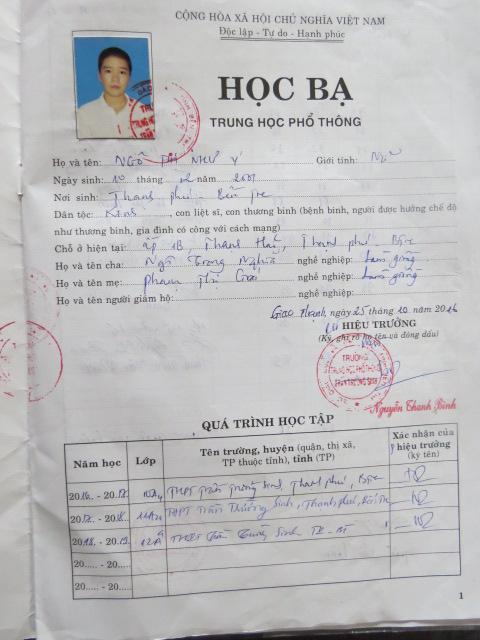 CỘNG HÒA XÃ HỘI CHỦ NGHĨA VIỆT NAM
Độc lập - Tự do - Hạnh phúc
HỌC BẠ
TRUNG HỌC PHỔ THÔNG
Họ và tên: NGÔ THỊ NHƯ Ý Giới tính: Nữ
Ngày sinh: 10 tháng 12 năm 2001
Nơi sinh: Thạnh phú, Bến Tre
Dân tộc: Kinh, con liệt sĩ, con thương binh (bệnh binh, người được hưởng chế độ
như thương binh, gia đình có công với cách mạng)
Chỗ ở hiện tại: Thạnh Hải, Thạnh phú, Bến Tre
Họ và tên cha: Ngô Trọng Nghĩa nghề nghiệp: Làm giồng
Họ và tên mẹ: Phạm Thị nghề nghiệp: Làm giồng
Họ và tên người giám hộ: nghề nghiệp:
Giao Thạnh, ngày 25 tháng 10 năm 2016
HIỆU TRƯỞNG
(Ký, ghi rõ họ tên và đóng dấu)
TRƯỜNG
TRUNG HỌC PHỔ THÔNG
TRẦN TRƯỜNG SINH
Nguyễn Thanh Bình
QUÁ TRÌNH HỌC TẬP
Năm học Lớp Tên trường, huyện (quận, thị xã, TP thuộc tỉnh), tỉnh (TP) Xác nhận của hiệu trưởng (ký tên)
2016 - 2017 THPT Trần Trường Sinh, Thạnh phú, Bến Tre
2017 - 2018 THPT Trần Trường Sinh, Thạnh phú, Bến Tre
2018 - 2019 THPT Trần Trường Sinh
20..... - 20.....
20..... - 20.....
1